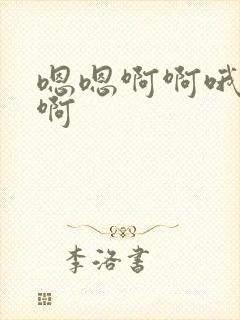 嗯嗯啊啊哦
啊
李洛书